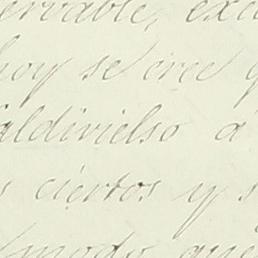 ervable,
hoy se cree
aldivielso á
s ciertos y s
modo que